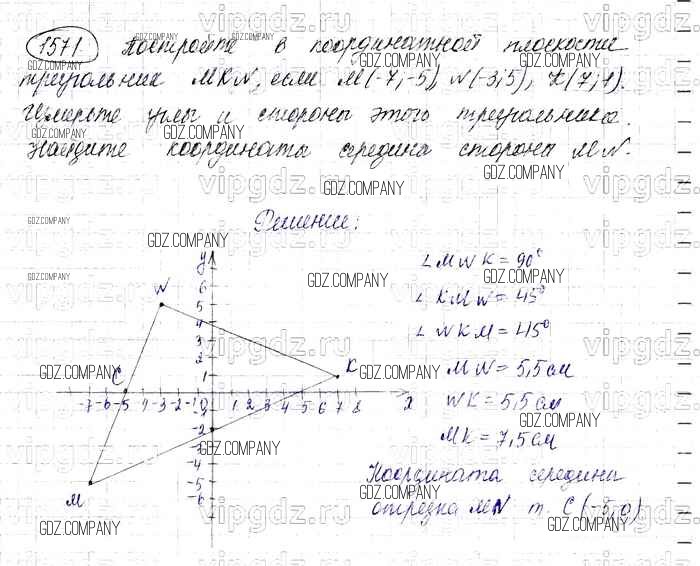 1571. Постройте в координатной плоскости
треугольник MKN, если M(-7;-5), N(-3;5), K(7;1).
Измерьте углы и стороны этого треугольника.
Найдите координаты середина стороны MN.
Решение:
∠MNK = 90°
∠KMN = 45°
∠NKM = 45°
MN = 5,5 см
NK = 5,5 см
MK = 7,5 см
Координата середина
отрезка MN т. C(-5;0)
y
6
5
4
3
2
1
N
K
C
M
-7 -6 -5 4 -3 -2 -1 0 1 2 3 4 5 6 7 8 x
-2
-4
-5
-6
GDZ.COMPANY
vipgdz.ru